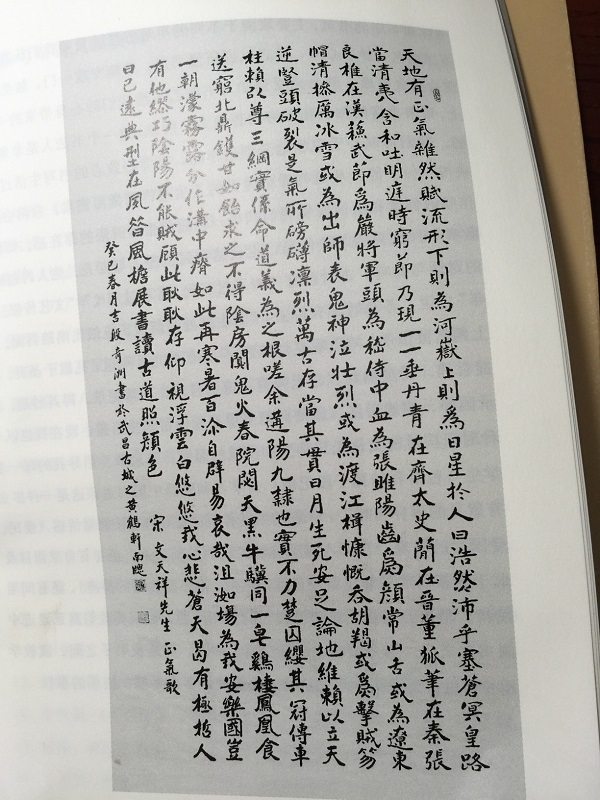 天地有正氣雜然賦流形下則為河嶽上則為日星於人曰浩然沛乎塞蒼冥皇路
當清夷含和吐明庭時窮節乃現一一垂丹青在齊太史簡在晉董狐筆在秦張
良椎在漢蘇武節為嚴將軍頭為嵇侍中血為張睢陽齒為顏常山舌或為遼東
帽清操厲冰雪或為出師表鬼神泣壯烈或為渡江楫慷慨吞胡羯或為擊賊笏
逆豎頭破裂是氣所磅礴凜烈萬古存當其貫日月生死安足論地維賴以立天
柱賴以尊三綱實係命道義為之根嗟余遘陽九隸也實不力楚囚纓其冠傳車
送窮北鼎鑊甘如飴求之不得陰房闃鬼火春院閟天黑牛驥同一皂鷄棲鳳凰食
一朝濛霧露分作溝中瘠如此再寒暑百沴自辟易哀哉沮洳場為我安樂國豈
有他繆巧陰陽不能賊顧此耿耿存仰視浮雲白悠悠我心悲蒼天曷有極哲人
日已遠典型在夙昔風檐展書讀古道照顏色 宋文天祥先生正氣歌
癸巳春月吉段奇洲書於武昌古城之黃鶴軒南窗